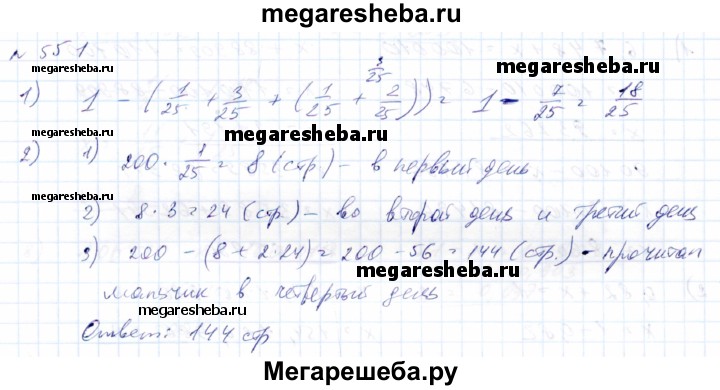 megaresheba.ru
№ 551
megaresheba.ru
3/25
1) 1 - (1/25 + 3/25 + (1/25 + 2/25)) = 1 - 7/25 = 18/25
megaresheba.ru
2) 1) 200 · 1/25 = 8 (стр) - в первый день
megaresheba.ru
2) 8 · 3 = 24 (стр.) - во второй день и третий день
3) 200 - (8 + 2·24) = 200 - 56 = 144 (стр.) - прочитал
megaresheba.ru
мальчик в четвертый день
megaresheba.ru
Ответ: 144 стр
Мегарешеба.ру